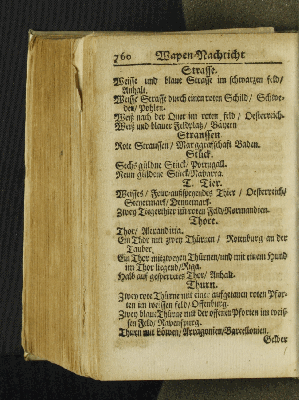 760 Wapen-Nachricht
Strasse.
Weisse und blaue Strasse im schwartzen feld/
Anhalt.
Weisse Strasse durch einen roten Schild/ Schwe-
den/ Pohlen.
Weiß nach der Quer im roten feld/ Oesterreich.
Weiß und blauer Feldplatz/ Bäyern
Straussen.
Rote Straussen/ Marggraffschaft Baden.
Stück.
Sechs güldne Stück/ Portugall.
Neun güldene Stück/Navarra.
T. Tier.
Weisses/ Feuer-ausspeyendes Thier/ Oesterreich/
Steyermarck/ Dennemarck.
Zwey Tigerthier im roten Feld/Normandien.
Thore.
Thor/ Alexandria.
Ein Thor mit zwey Thürnen/ Rotenburg an der
Tauber.
Ein Thor mit zweyen Thürnen/und mit einem Hund
im Thor liegend/Riga.
Halb auf gesperrtes Thor/ Anhalt.
Thurn.
Zwey rote Thürne mit einer aufgetanen roten Pfor-
ten im weissen feld/ Offenburg.
Zwey blaue Thürne mit der offenen Pforten im weiß-
sen Feld/ Ravenspurg.
Thurn mit Löwen/ Arragonien/Barcellonien.
Gelber